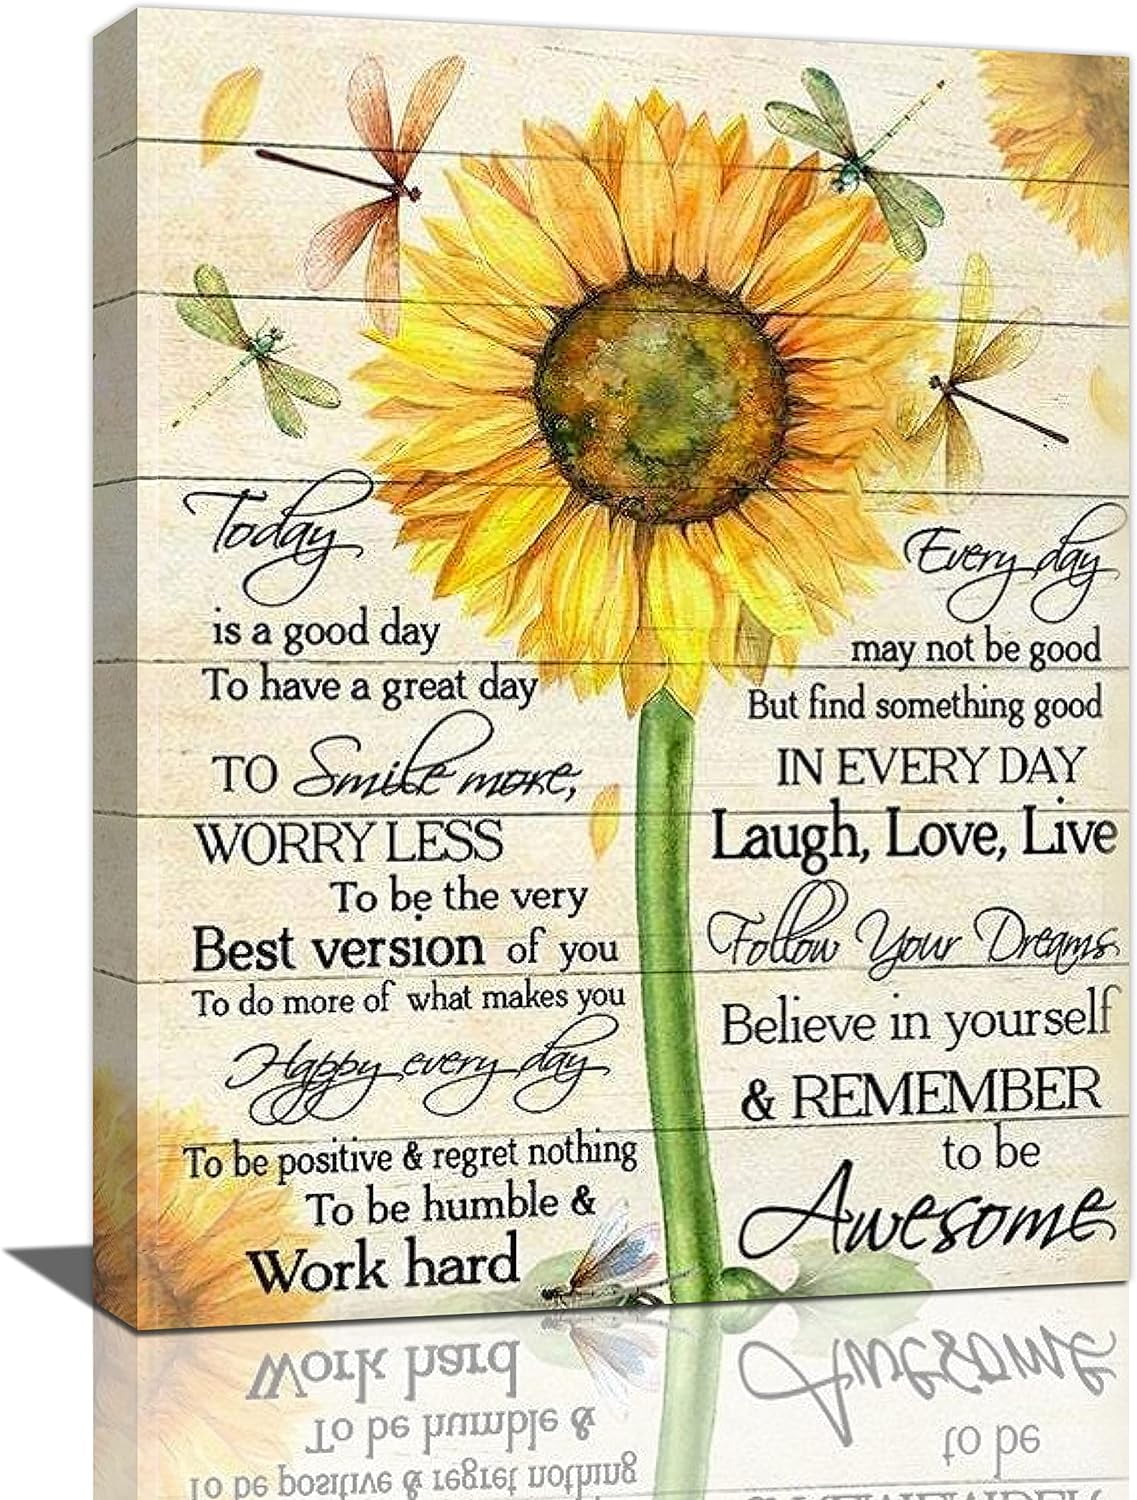 Today
is a good day
To have a great day
TO Smile more,
WORRY LESS
To be the very
Best version of you
To do more of what makes you
Happy every day
To be positive & regret nothing
To be humble &
Work hard
Every day
may not be good
But find something good
IN EVERY DAY
Laugh, Love, Live
Follow Your Dreams
Believe in yourself
& REMEMBER
to be
Awesome